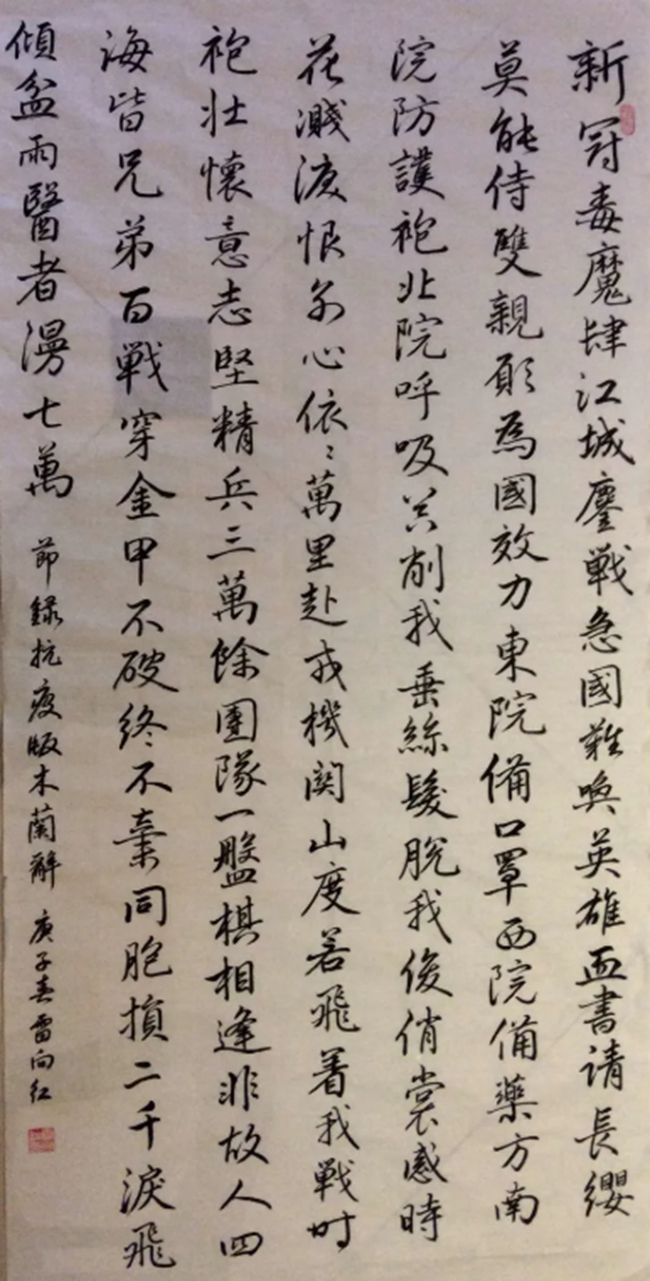 新冠毒魔肆江城鏖戰急國難喚英雄血書请長纓
莫能侍雙親願為國效力東院備口罩西院備藥方南
院防護袍北院呼吸共削我垂絲髮脫我俊俏裳感時
花濺淚恨別心依〻萬里赴戎機関山度若飛着我戰时
袍壯懷意志堅精兵三萬餘團隊一盤棋相逢非故人四
海皆兄弟百戰穿金甲不破終不棄同胞損二千淚飛
傾盆雨醫者湯七萬
節録抗疫版木蘭辭 庚子春雷向红